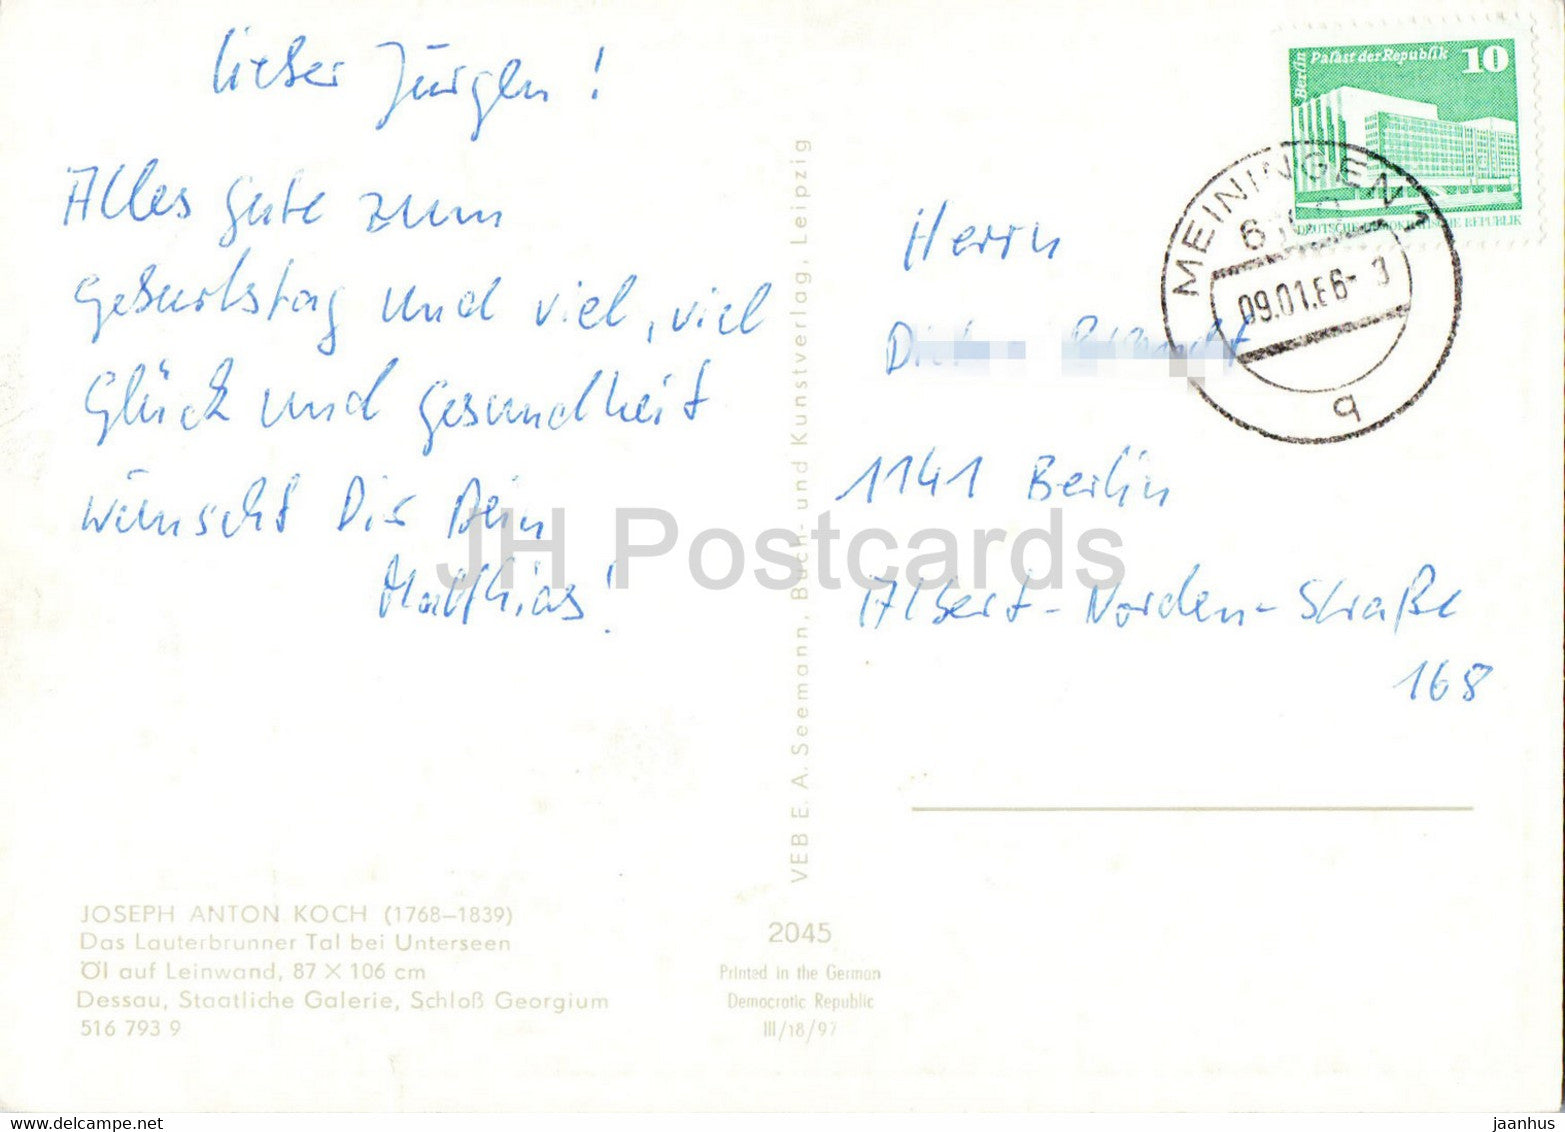 Lieber Jürgen!
Alles gute zum
Geburtstag und viel, viel
Glück und Gesundheit
wünscht Dir Dein
Matthias!
JOSEPH ANTON KOCH (1768–1839)
Das Lauterbrunner Tal bei Unterseen
Öl auf Leinwand, 87 × 106 cm
Dessau, Staatliche Galerie, Schloß Georgium
516 793 9
VEB E. A. Seemann, Buch- und Kunstverlag, Leipzig
2045
Printed in the German
Democratic Republic
III/18/97
Berlin
Palast der Republik 10
DEUTSCHE DEMOKRATISCHE REPUBLIK
MEININGEN 1
09.01.86-
q
Herrn
1141 Berlin
Albert-Norden-Straße
168
JH Postcards
www.delcampe.net
jaanhus